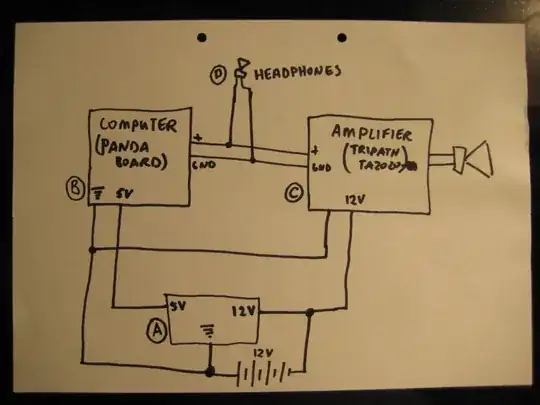 D HEADPHONES
COMPUTER
(PANDA
BOARD)
+
GND
B
5V
AMPLIFIER
(TRIPATH
+
GND
C
12V
5V
12V
A
12V